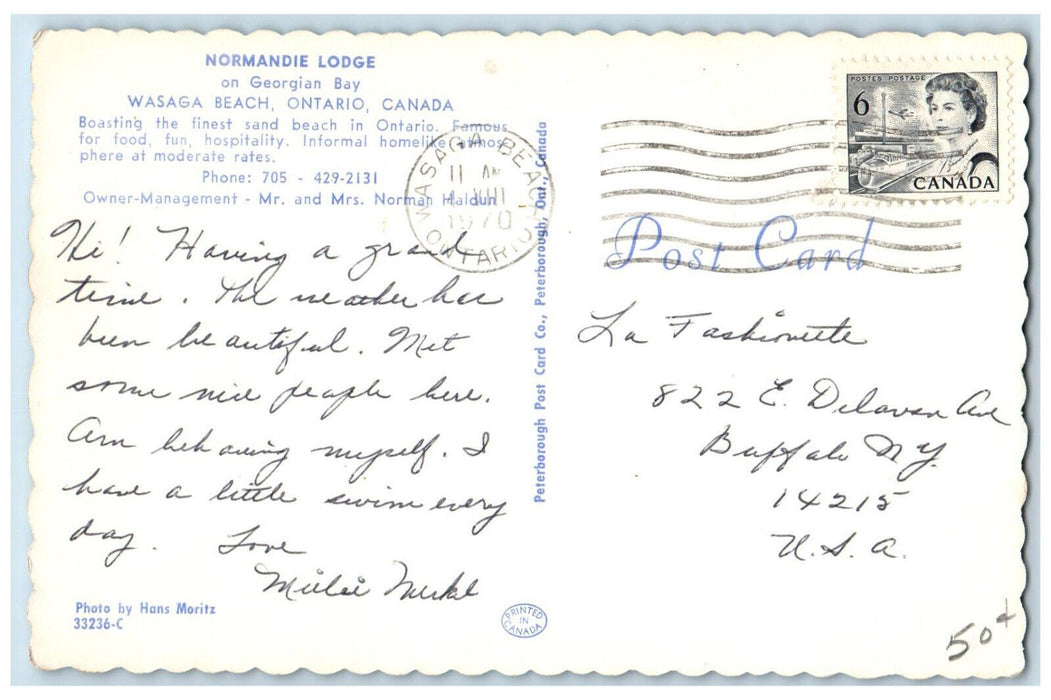 NORMANDIE LODGE
on Georgian Bay
WASAGA BEACH, ONTARIO, CANADA
Boasting the finest sand beach in Ontario. Famous
for food, fun, hospitality. Informal homelike atmos-
phere at moderate rates.
Phone: 705 - 429-2131
Owner-Management - Mr. and Mrs. Norman Haldun
Hi! Having a grand
time. The weather has
been beautiful. Met
some nice people here.
Am behaving myself. I
have a little swim every
day. Love
Photo by Hans Moritz
33236-C
WASAGA BEACH
11 AM
VIII
1970
ONTARIO
Peterborough Post Card Co., Peterborough, Ont., Canada
PRINTED
IN
CANADA
POSTES POSTAGE
6
CANADA
Post Card
La Fashionette
822 E. Delavan Ave
Buffalo N.Y.
14215
U.S.A.
50¢